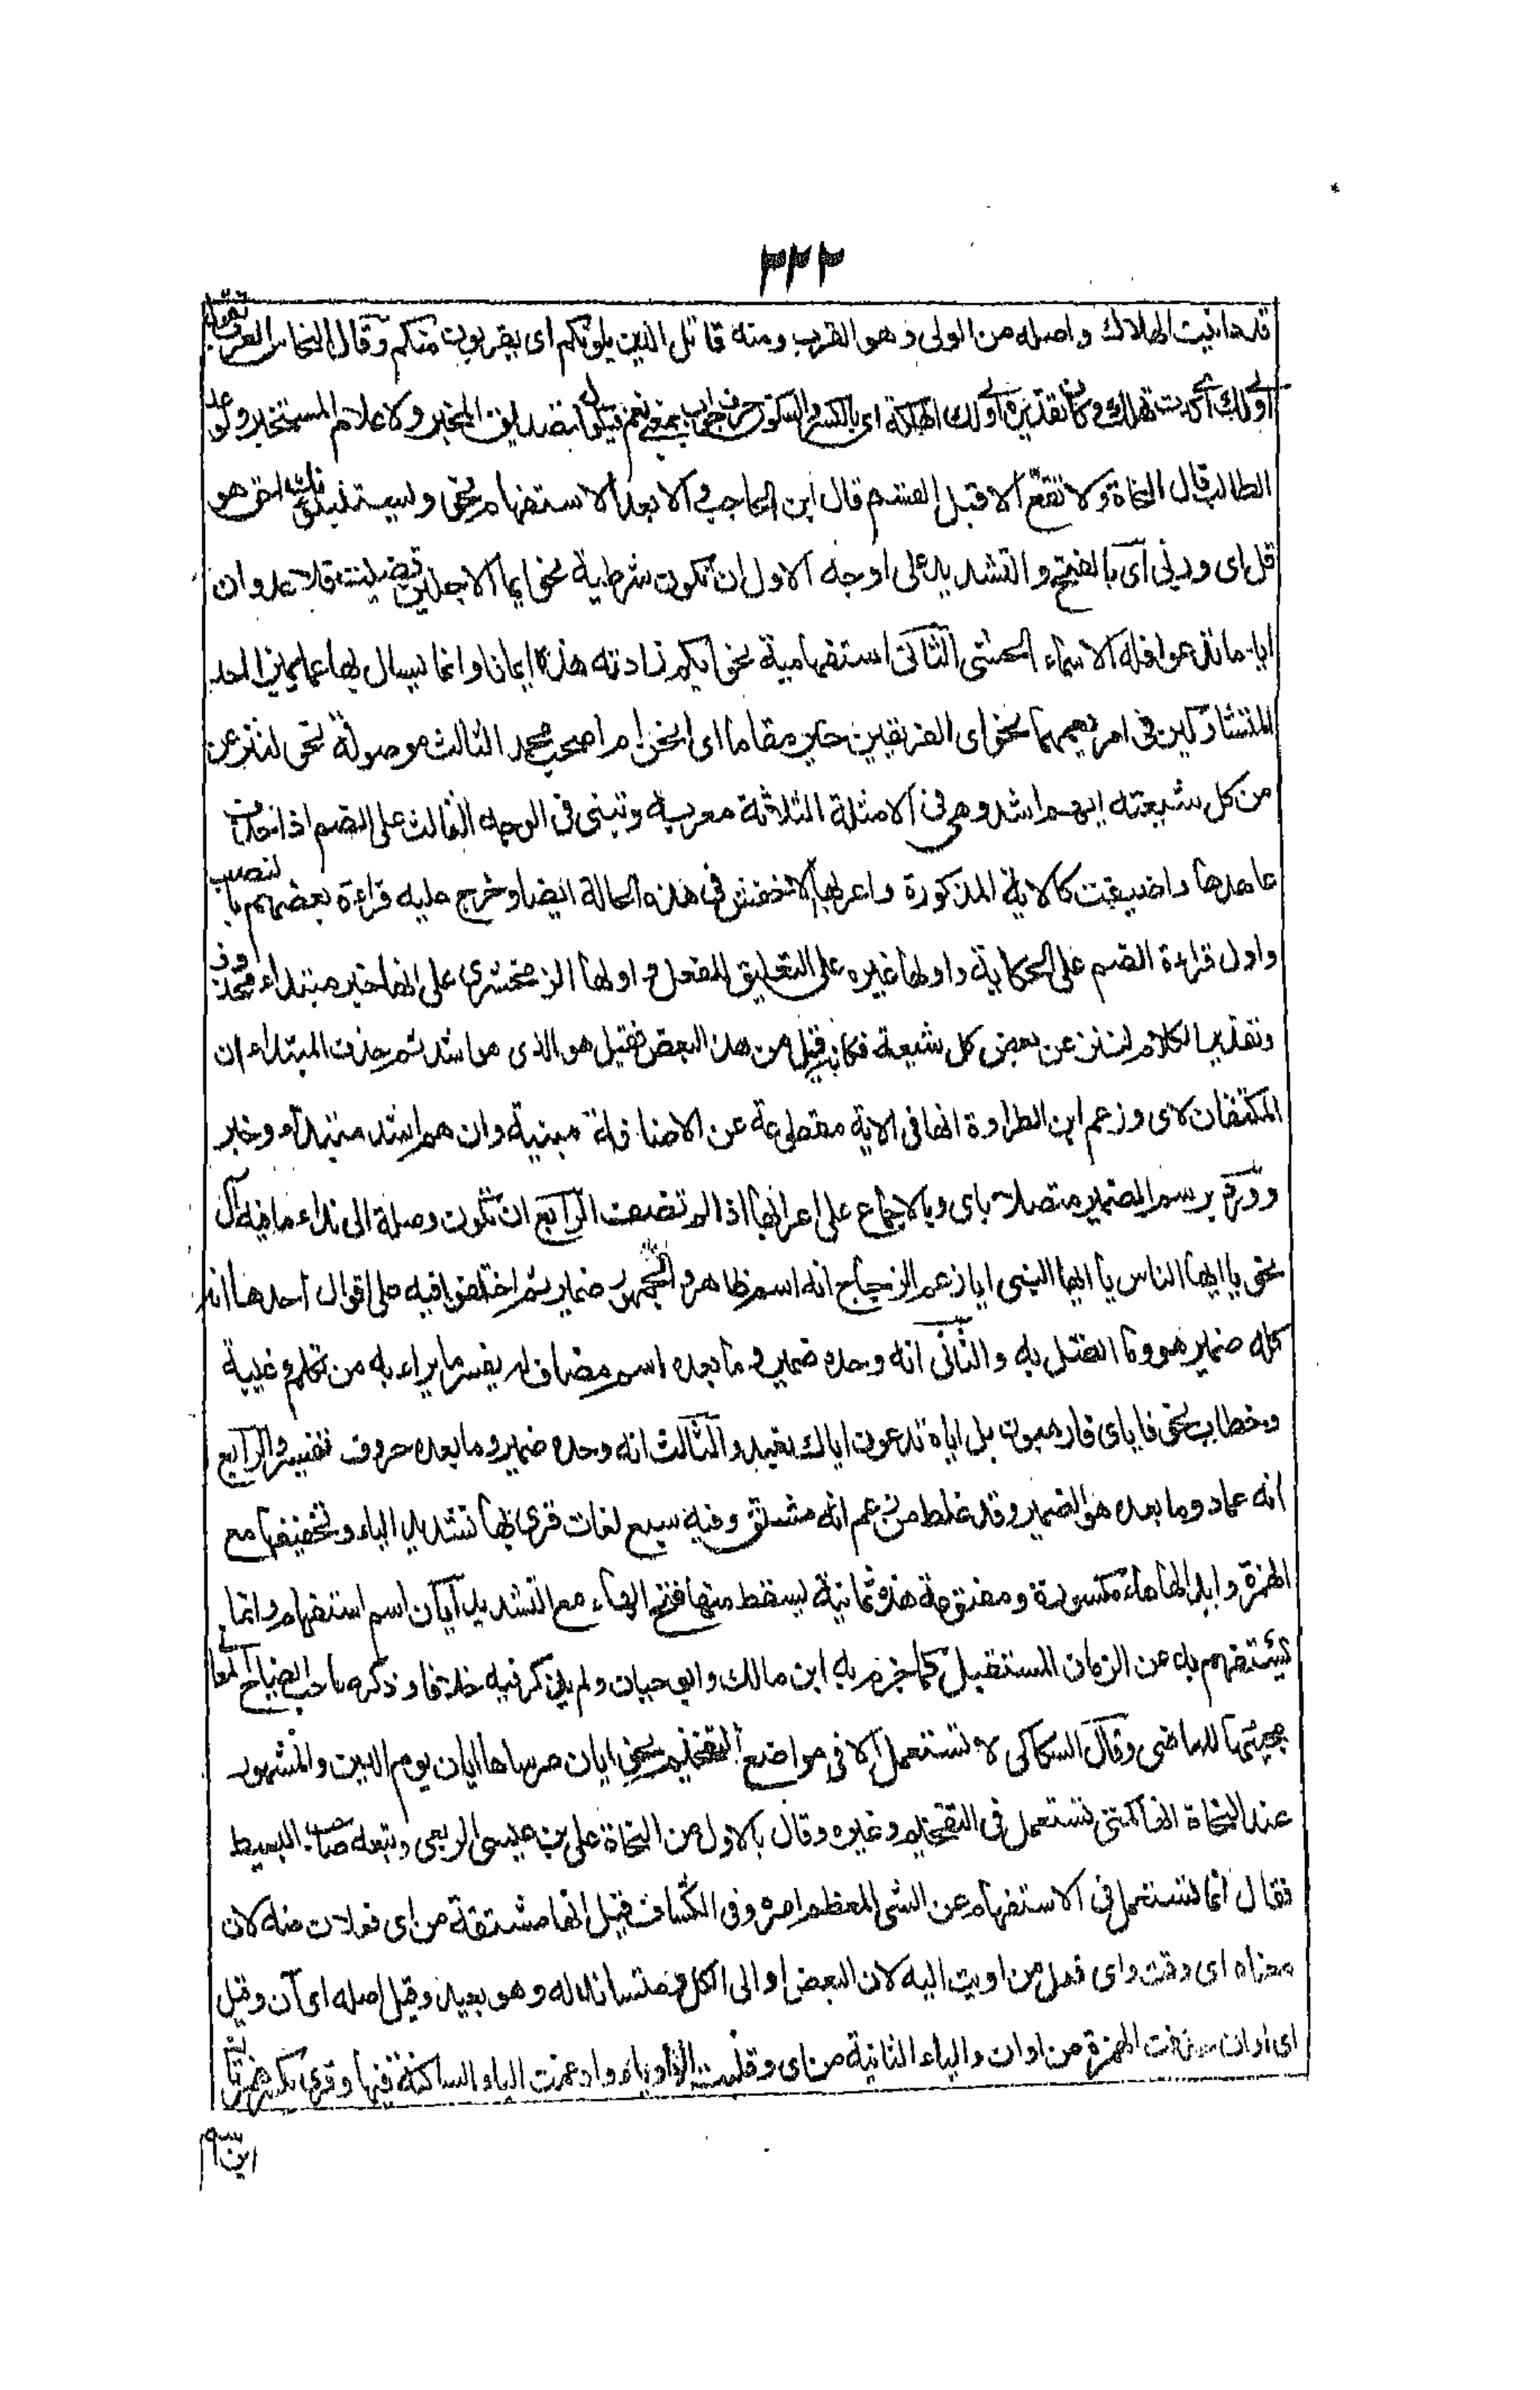 ٣٢٢
قد دانيت الهلاك واصله من الولي وهو القرب ومنه قاتلوا الذين يلونكم اى يقربون منكم وقال النحاس العرب تقول
اولى لك اى كدت تهلك وكان تقديره اولى لك الهلكة اى بالكسر والسكون حرف جواب بمعنى نعم فيكون لتصديق المخبر ولاعلام المستخبر ولوعد
الطالب قال النحاة ولا تقع الا قبل القسم قال ابن الحاجب والا بعد الاستفهام نحو ويستنبئونك احق هو
قل اى وربى اى بالفتح والتشديد على اوجه الاول ان تكون شرطية نحو ايما الاجلين قضيت فلا عدوان
ايا ما تدعوا فله الاسماء الحسنى الثانى استفهامية نحو ايكم زادته هذه ايمانا وانما يسال بها عما يميز احد
المتشاركين فى امر يعمهما نحو اى الفريقين خير مقاما اى نحن ام اصحب محمد الثالث موصولة نحو لننزعن
من كل شيعته ايهم اشد وهى فى الامثلة الثلاثة معربة وتبنى فى الوجه الثالث على الضم اذا حذف
عائدها واضيفت كالاية المذكورة واعربها الاخفش فى هذه الحالة ايضا وخرج عليه قراءة بعضهم بالنصب
واول قراءة الضم على الحكاية واولها غيره على التعليق للفعل واولها الزمخشرى على انها خبر مبتداء محذوف
وتقدير الكلام لننزعن بعض كل شيعة فكانه قيل من هذا البعض فقيل هو الذى هو اشد ثم حذف المبتداء ان
المكتنفان لاى وزعم ابن الطراوة انها فى الاية مقطوعة عن الاضافة مبنية وان هم اشد مبتداء وخبر
ورد برسم الضمير متصلا باى وبالاجماع على اعرابها اذا لم تضف الرابع ان تكون وصلة الى نداء ما فيه ال
نحو يا ايها الناس يا ايها النبى ايا زعم الزجاج انه اسم ظاهر والجمهور ضمير ثم اختلفوا فيه على اقوال احدها انه
كله ضمير هو وما اتصل به والثانى انه وحده ضمير وما بعده اسم مضاف له يفسر ما يراد به من تكلم وغيبة
وخطاب نحو فاياى فارهبون بل اياه تدعون اياك نعبد والثالث انه وحده ضمير وما بعده حروف تفسير والرابع
انه عماد وما بعده هو الضمير وقد غلط من زعم انه مشتق وفيه سبع لغات قرئ بها تشديد الياء وتخفيفها مع
الهمزة وابدالها هاء مكسورة ومفتوحة هذه ثمانية يسقط منها فتح الهاء مع التشديد ايان اسم استفهام وانما
يستفهم به عن الزمان المستقبل كما جزم به ابن مالك وابو حيان ولم يذكر فيه خلافا وذكر صاحب ايضاح المعانى
مجيئها للماضى وقال السكاكى لا تستعمل الا فى مواضع التفخيم نحو ايان مرساها ايان يوم الدين والمشهور
عند النحاة انها كمتى تستعمل فى التفخيم وغيره وقال بالاول من النحاة على بن عيسى الربعى وتبعه صاحب البسيط
فقال انما تستعمل فى الاستفهام عن الشى المعظم امره وفى الكشاف قيل انها مشتقة من اى فعلان منه لان
معناه اى وقت واى فعل من اويت اليه لان البعض اوالى الكل ومتساند له وهو بعيد وقيل اصله اى آن وقيل
اى اوان حذفت الهمزة من اوان والياء الثانية من اى وقلبت الواو ياء وادغمت الياء الساكنة فيها وقرئ بكسر همزتها
اين